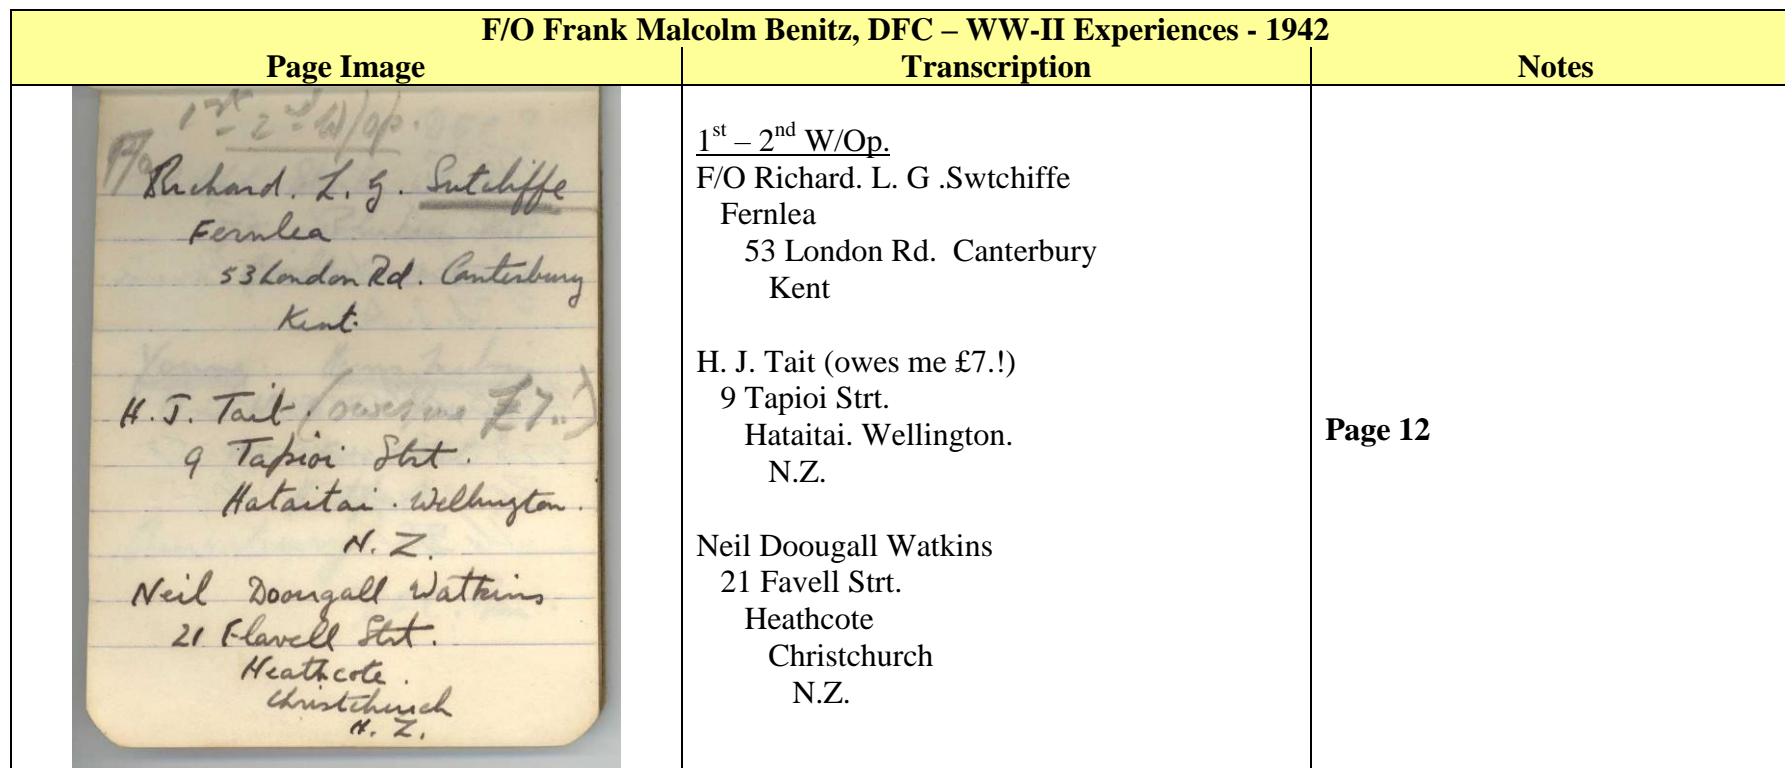 F/O Frank Malcolm Benitz, DFC – WW-II Experiences - 1942
Page Image
Transcription
Notes
1st - 2nd W/Op.
F/O
Richard. L. G. Sutcliffe
Fernlea
53 London Rd. Canterbury
Kent.
H. J. Tait. (owes me £7..!)
9 Tapioi Strt.
Hataitai. Wellington.
N. Z.
Neil Doougall Watkins
21 Flavell Strt.
Heathcote.
Christchurch
N. Z.
1st – 2nd W/Op.
F/O Richard. L. G .Swtchiffe
Fernlea
53 London Rd. Canterbury
Kent
H. J. Tait (owes me £7.!)
9 Tapioi Strt.
Hataitai. Wellington.
N.Z.
Neil Doougall Watkins
21 Favell Strt.
Heathcote
Christchurch
N.Z.
Page 12